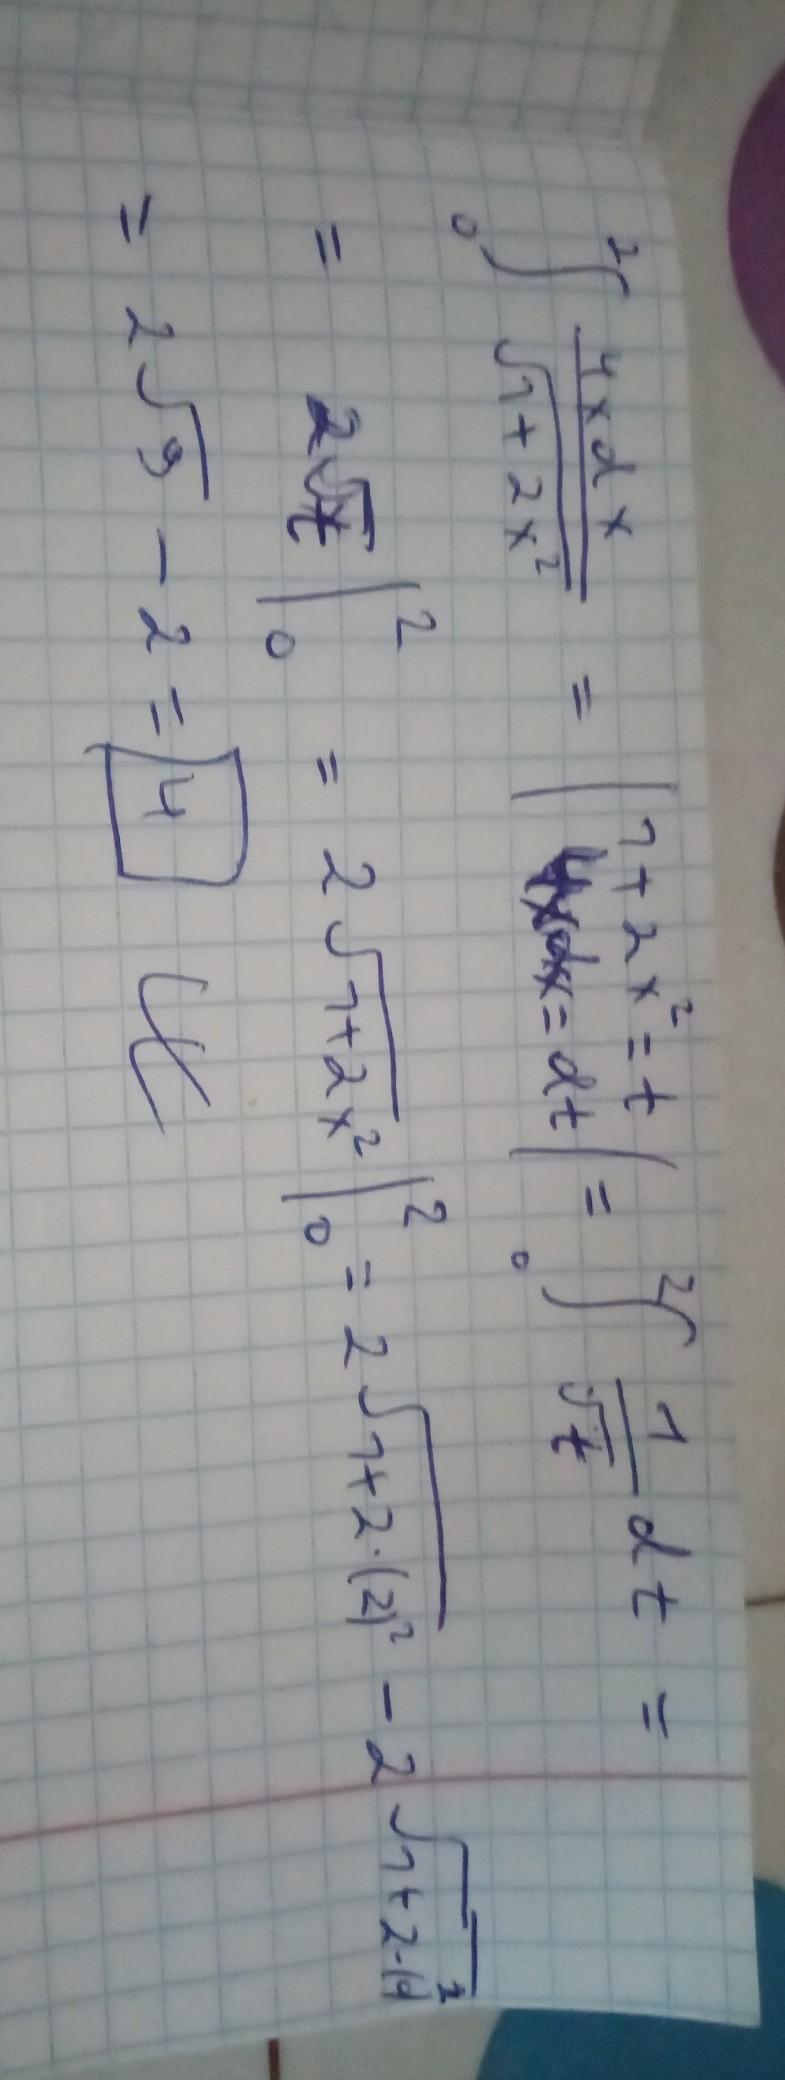 ∫₀² 4xdx / √(1+2x²) = | 1+2x² = t 4xdx = dt | = ∫₀² 1/√t dt =
= 2√t |₀² = 2√(1+2x²) |₀² = 2√(1+2·(2)²) - 2√(1+2·(0)²)
= 2√9 - 2 = 4